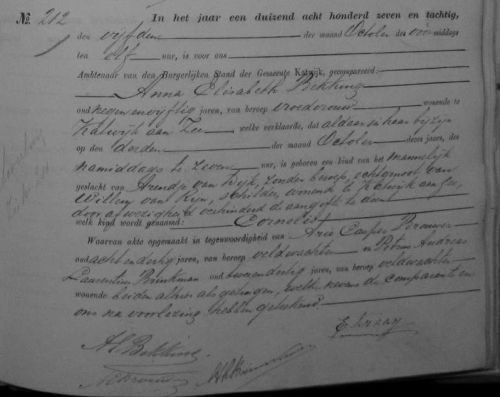 No. 212
In het jaar een duizend acht honderd zeven en tachtig,
den vijfden der maand October des voormiddags
ten elf ure, is voor ons
Ambtenaar van den Burgerlijken Stand der Gemeente Katwijk, gecompareerd:
Anna Elisabeth Bekking
oud negenenvijftig jaren, van beroep vroedvrouw wonende te
Katwijk aan Zee welke verklaarde, dat aldaar in haar bijzijn
op den derden der maand October dezes jaars, des
namiddags te zeven ure, is geboren een kind van het mannelijk
geslacht van Arendje van Dijk, zonder beroep, echtgenoot van
Willem van Rijn, schilder, wonende te Katwijk aan Zee,
door afwezigheid verhinderd de aangifte te doen
welk kind wordt genaamd: Cornelis
Waarvan akte opgemaakt in tegenwoordigheid van Arie Casper Brouwer
oud achtendertig jaren, van beroep veldwachter en Andreas
Laurentius Brinkman oud jaren, van beroep veldwachter
wonende beiden alhier als getuigen, welke nevens de comparante en
ons na voorlezing hebben geteekend.
A. E. Bekking